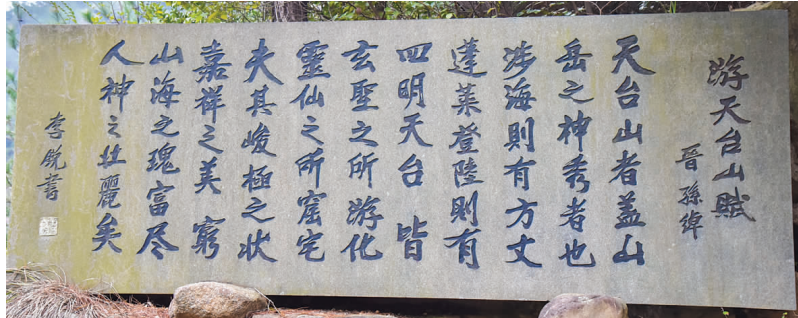 游天台山賦
晉 孫綽
天台山者蓋山
岳之神秀者也
涉海則有方丈
蓬萊登陸則有
四明天台 皆
玄聖之所游化
靈仙之所窟宅
夫其峻極之狀
嘉祥之美 窮
山海之瑰富尽
人神之壯麗矣
李銳書